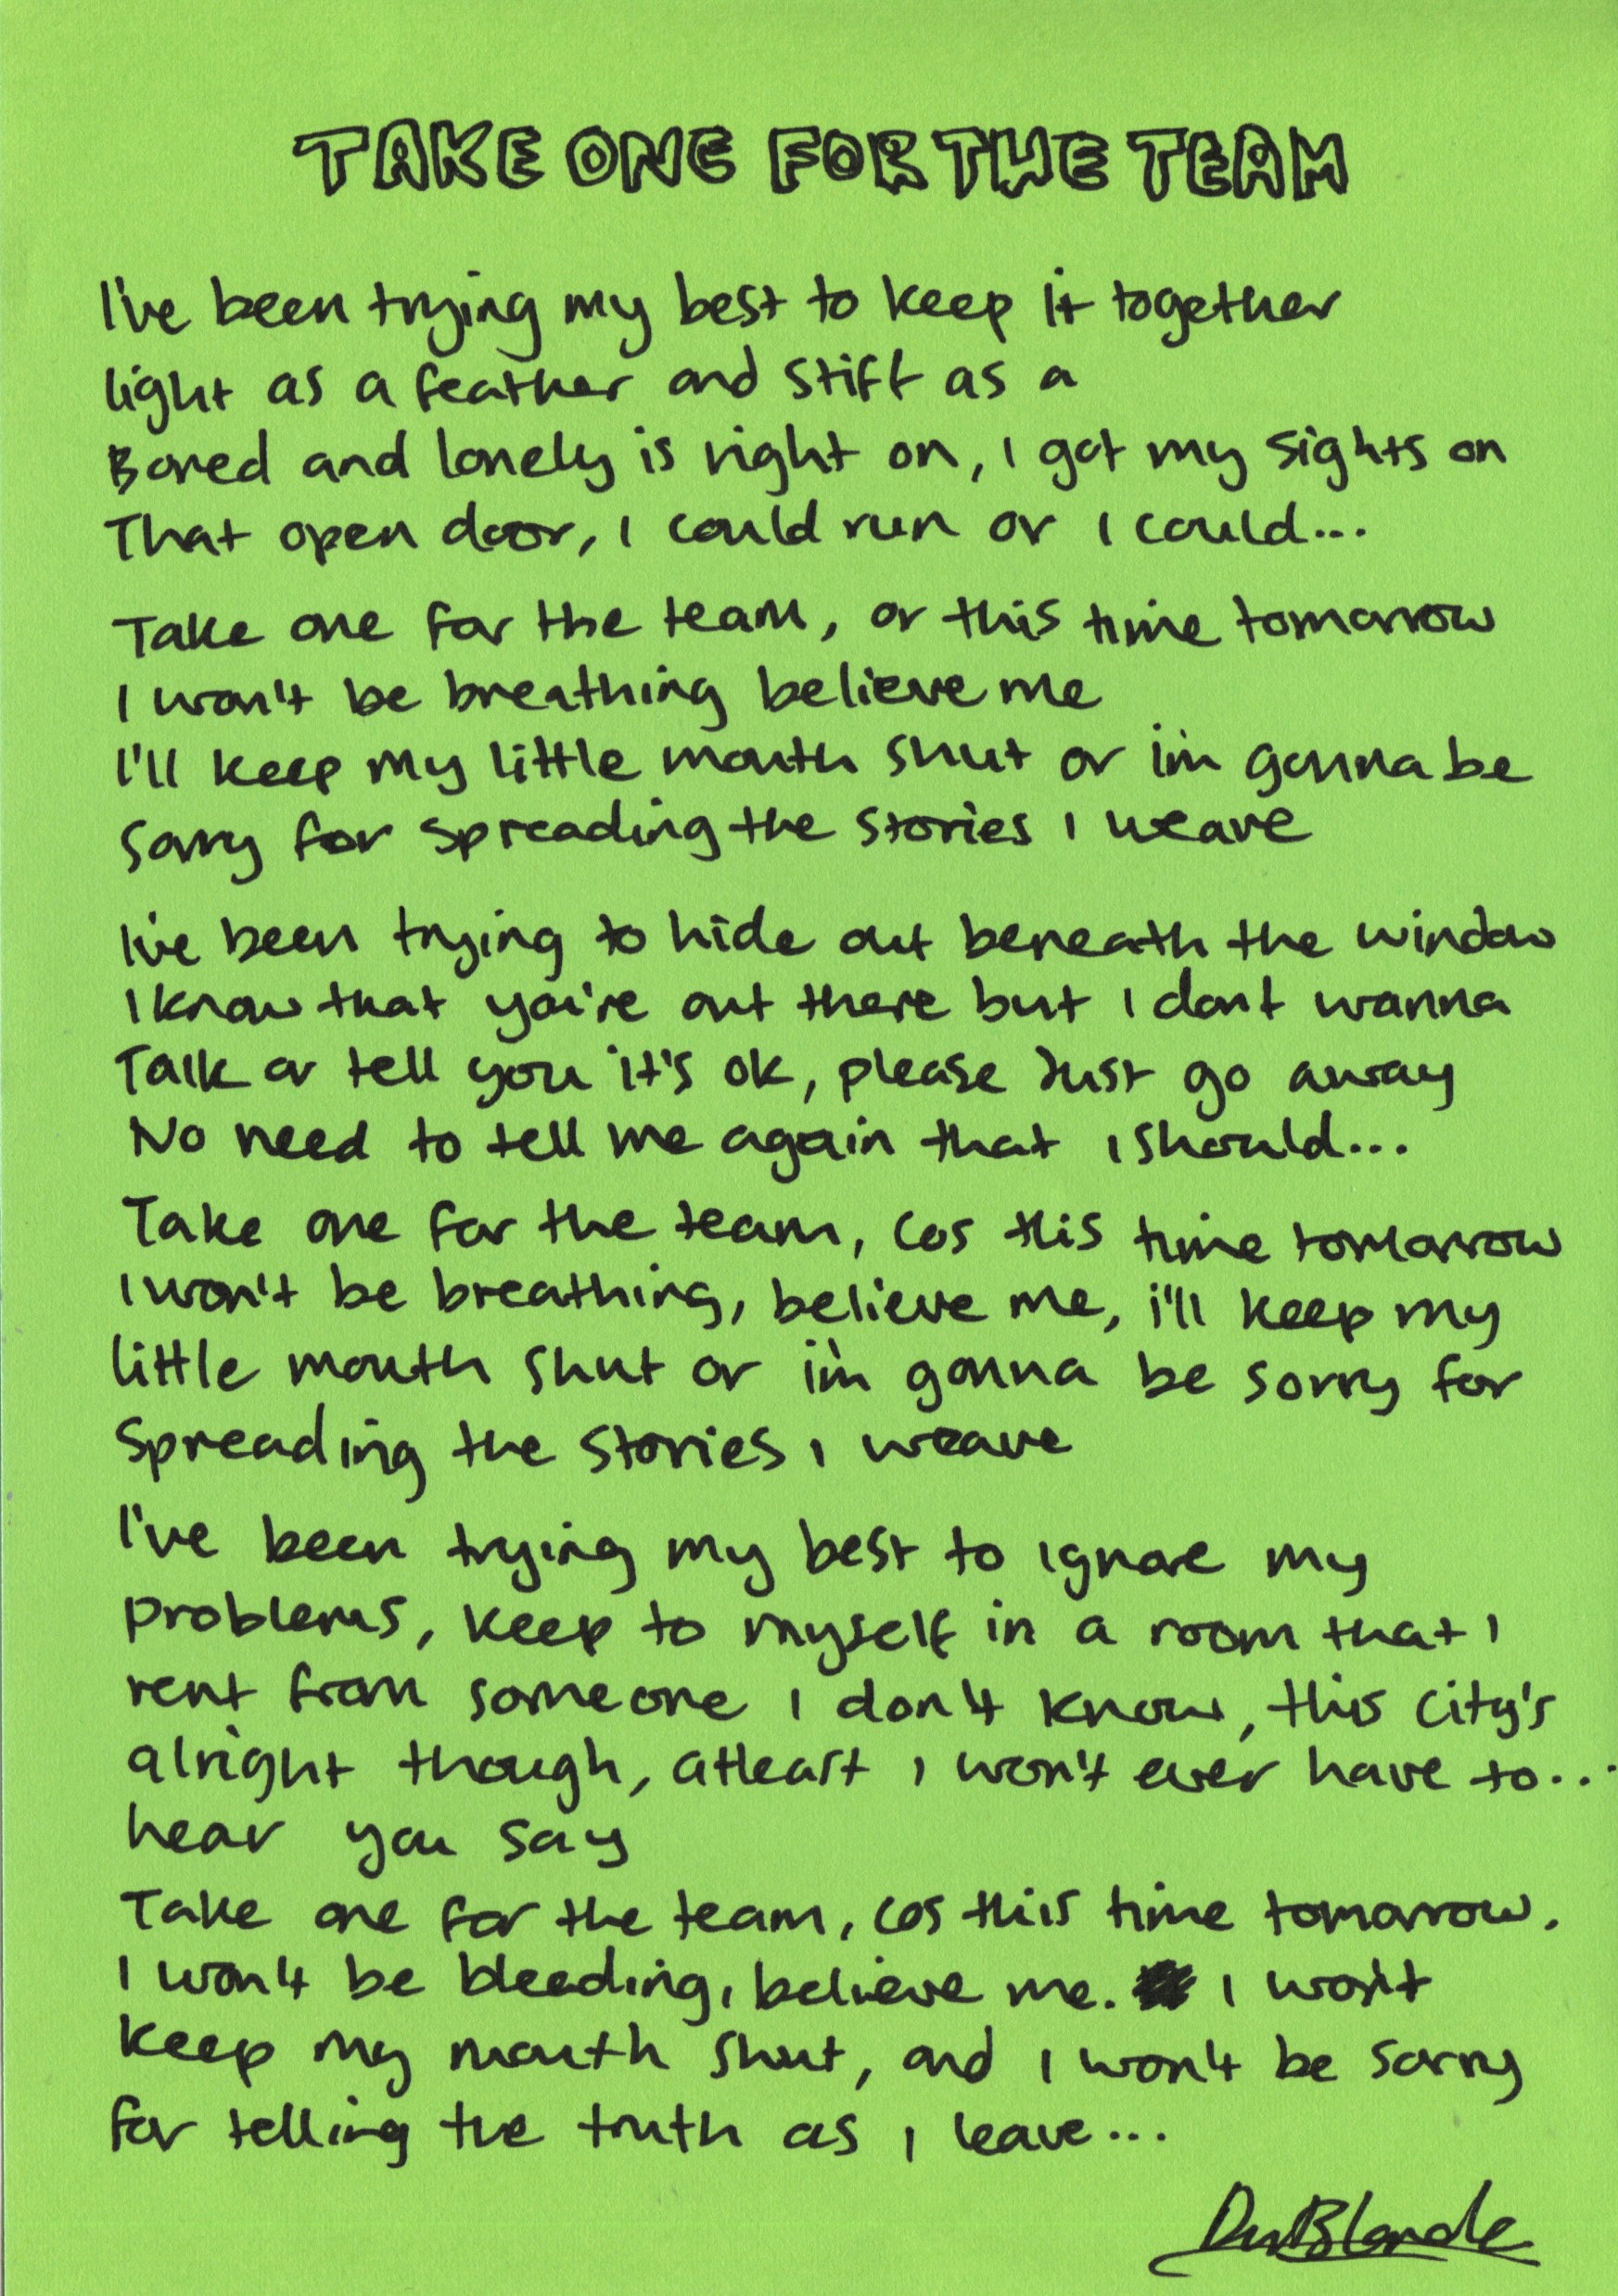 TAKE ONE FOR THE TEAM
I've been trying my best to keep it together
light as a feather and stiff as a
Bored and lonely is right on, I got my sights on
That open door, I could run or I could...
Take one for the team, or this time tomorrow
I won't be breathing believe me
I'll keep my little mouth shut or i'm gonna be
Sorry for spreading the stories I weave
I've been trying to hide out beneath the window
I know that you're out there but I don't wanna
Talk or tell you it's ok, please Just go away
No need to tell me again that I should...
Take one for the team, cos this time tomorrow
I won't be breathing, believe me, i'll keep my
little mouth shut or i'm gonna be sorry for
Spreading the stories I weave
I've been trying my best to ignore my
problems, keep to myself in a room that I
rent from someone I don't know, this city's
alright though, atleast I won't ever have to...
hear you say
Take one for the team, cos this time tomorrow.
I won't be bleeding, believe me. I won't
keep my mouth shut, and I won't be sorry
for telling the truth as I leave...
Du Blonde